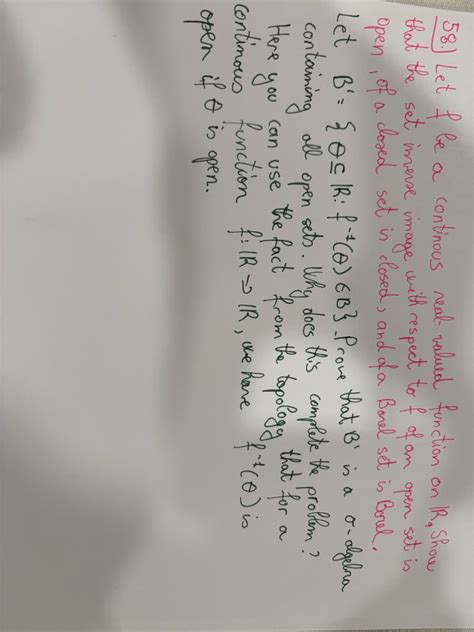 58.) Let f be a continous real-valued function on ℝ. Show
that the set inverse image with respect to f of an open set is
open, of a closed set is closed, and of a Borel set is Borel.
Let B' = {θ ⊆ ℝ: f⁻¹(θ) ∈ B}. Prove that B' is a σ-algebra
containing all open sets. Why does this complete the problem?
Here you can use the fact from the topology that for a
continous function f: ℝ → ℝ, we have f⁻¹(θ) is
open if θ is open.